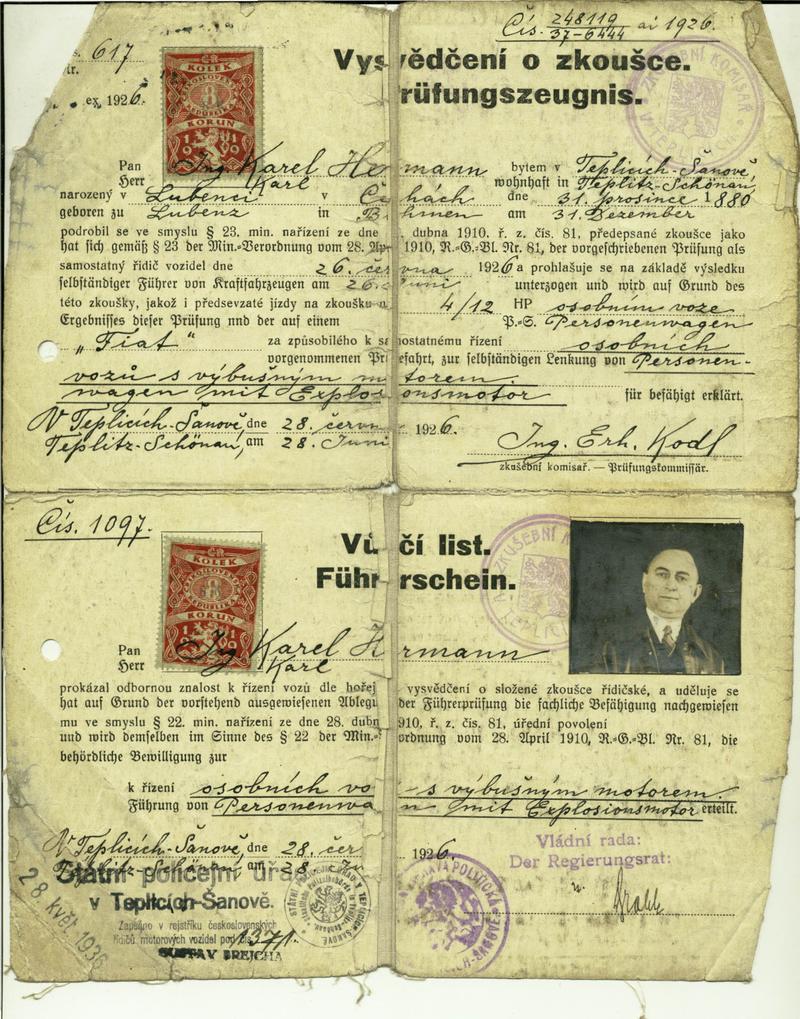 Čís. 248119/37-6444 ai 1926
617
ex 1926.
ČR
KOLEK
8
KORUN
1919
Vysvědčení o zkoušce.
rüfungszeugnis.
ZKUŠEBNÍ KOMISAŘ
Pan Ing Karel He mann bytem v Teplicích-Šanově,
Herr Karl wohnhaft in Teplitz-Schönau,
narozený v Lubenci v Če hách dne 31. prosince 1880
geboren zu Lubenz in B hmen am 31. Dezember
podrobil se ve smyslu § 23. min. nařízení ze dne . dubna 1910. ř. z. čís. 81, předepsané zkoušce jako
hat sich gemäß § 23 der Min.-Verordnung vom 28. Apr 1910, R.-G.-Bl. Nr. 81, der vorgeschriebenen Prüfung als
samostatný řidič vozidel dne 26. čer vna 1926 a prohlašuje se na základě výsledku
selbständiger Führer von Kraftfahrzeugen am 26. Juni unterzogen und wird auf Grund des
této zkoušky, jakož i předsevzaté jízdy na zkoušku n 4/12 HP osobním voze
Ergebnisses dieser Prüfung nnd der auf einem P.-S. Personenwagen
„Fiat" za způsobilého k sa mostatnému řízení osobních
vorgenommenen Pr efahrt, zur selbständigen Lenkung von Personen-
vozů s výbušným m otorem.
wagen mit Explos ionsmotor für befähigt erklärt.
V Teplicích-Šanově, dne 28. červn . 1926.
Teplitz-Schönau, am 28. Juni
Ing. Erh. Kodl
zkušební komisař. — Prüfungskommissär.
Čís. 1097.
ČR
KOLEK
8
KORUN
1919
Vů čí list.
Führ erschein.
ZKUŠEBNÍ
Pan Ing Karel H ermann
Herr Karl
prokázal odbornou znalost k řízení vozů dle hořej vysvědčení o složené zkoušce řidičské, a uděluje se
hat auf Grund der vorstehend ausgewiesenen Ablegu der Führerprüfung die fachliche Befähigung nachgewiesen
mu ve smyslu § 22. min. nařízení ze dne 28. dubn 910, ř. z. čís. 81, úřední povolení
und wird demselben im Sinne des § 22 der Min.- ordnung vom 28. April 1910, R.-G.-Bl. Nr. 81, die
behördliche Bewilligung zur
k řízení osobních vo - s výbušným motorem.
Führung von Personenwa n mit Explosionsmotor erteilt.
V Teplicích-Šanově, dne 28. čer . 1926.
am 28.
Vládní rada:
Der Regierungsrat:
Státní policejní úřa
v Teplicích-Šanově.
28. květ 1936
Zapsáno v rejstříku československých
řidičů motorových vozidel pod čís. 1371.
GUSTAV BREJCHA
STÁTNÍ POLICEJNÍ ÚŘAD V TEPLICÍCH ŠANOVĚ
SPRÁVA POLITICKÁ